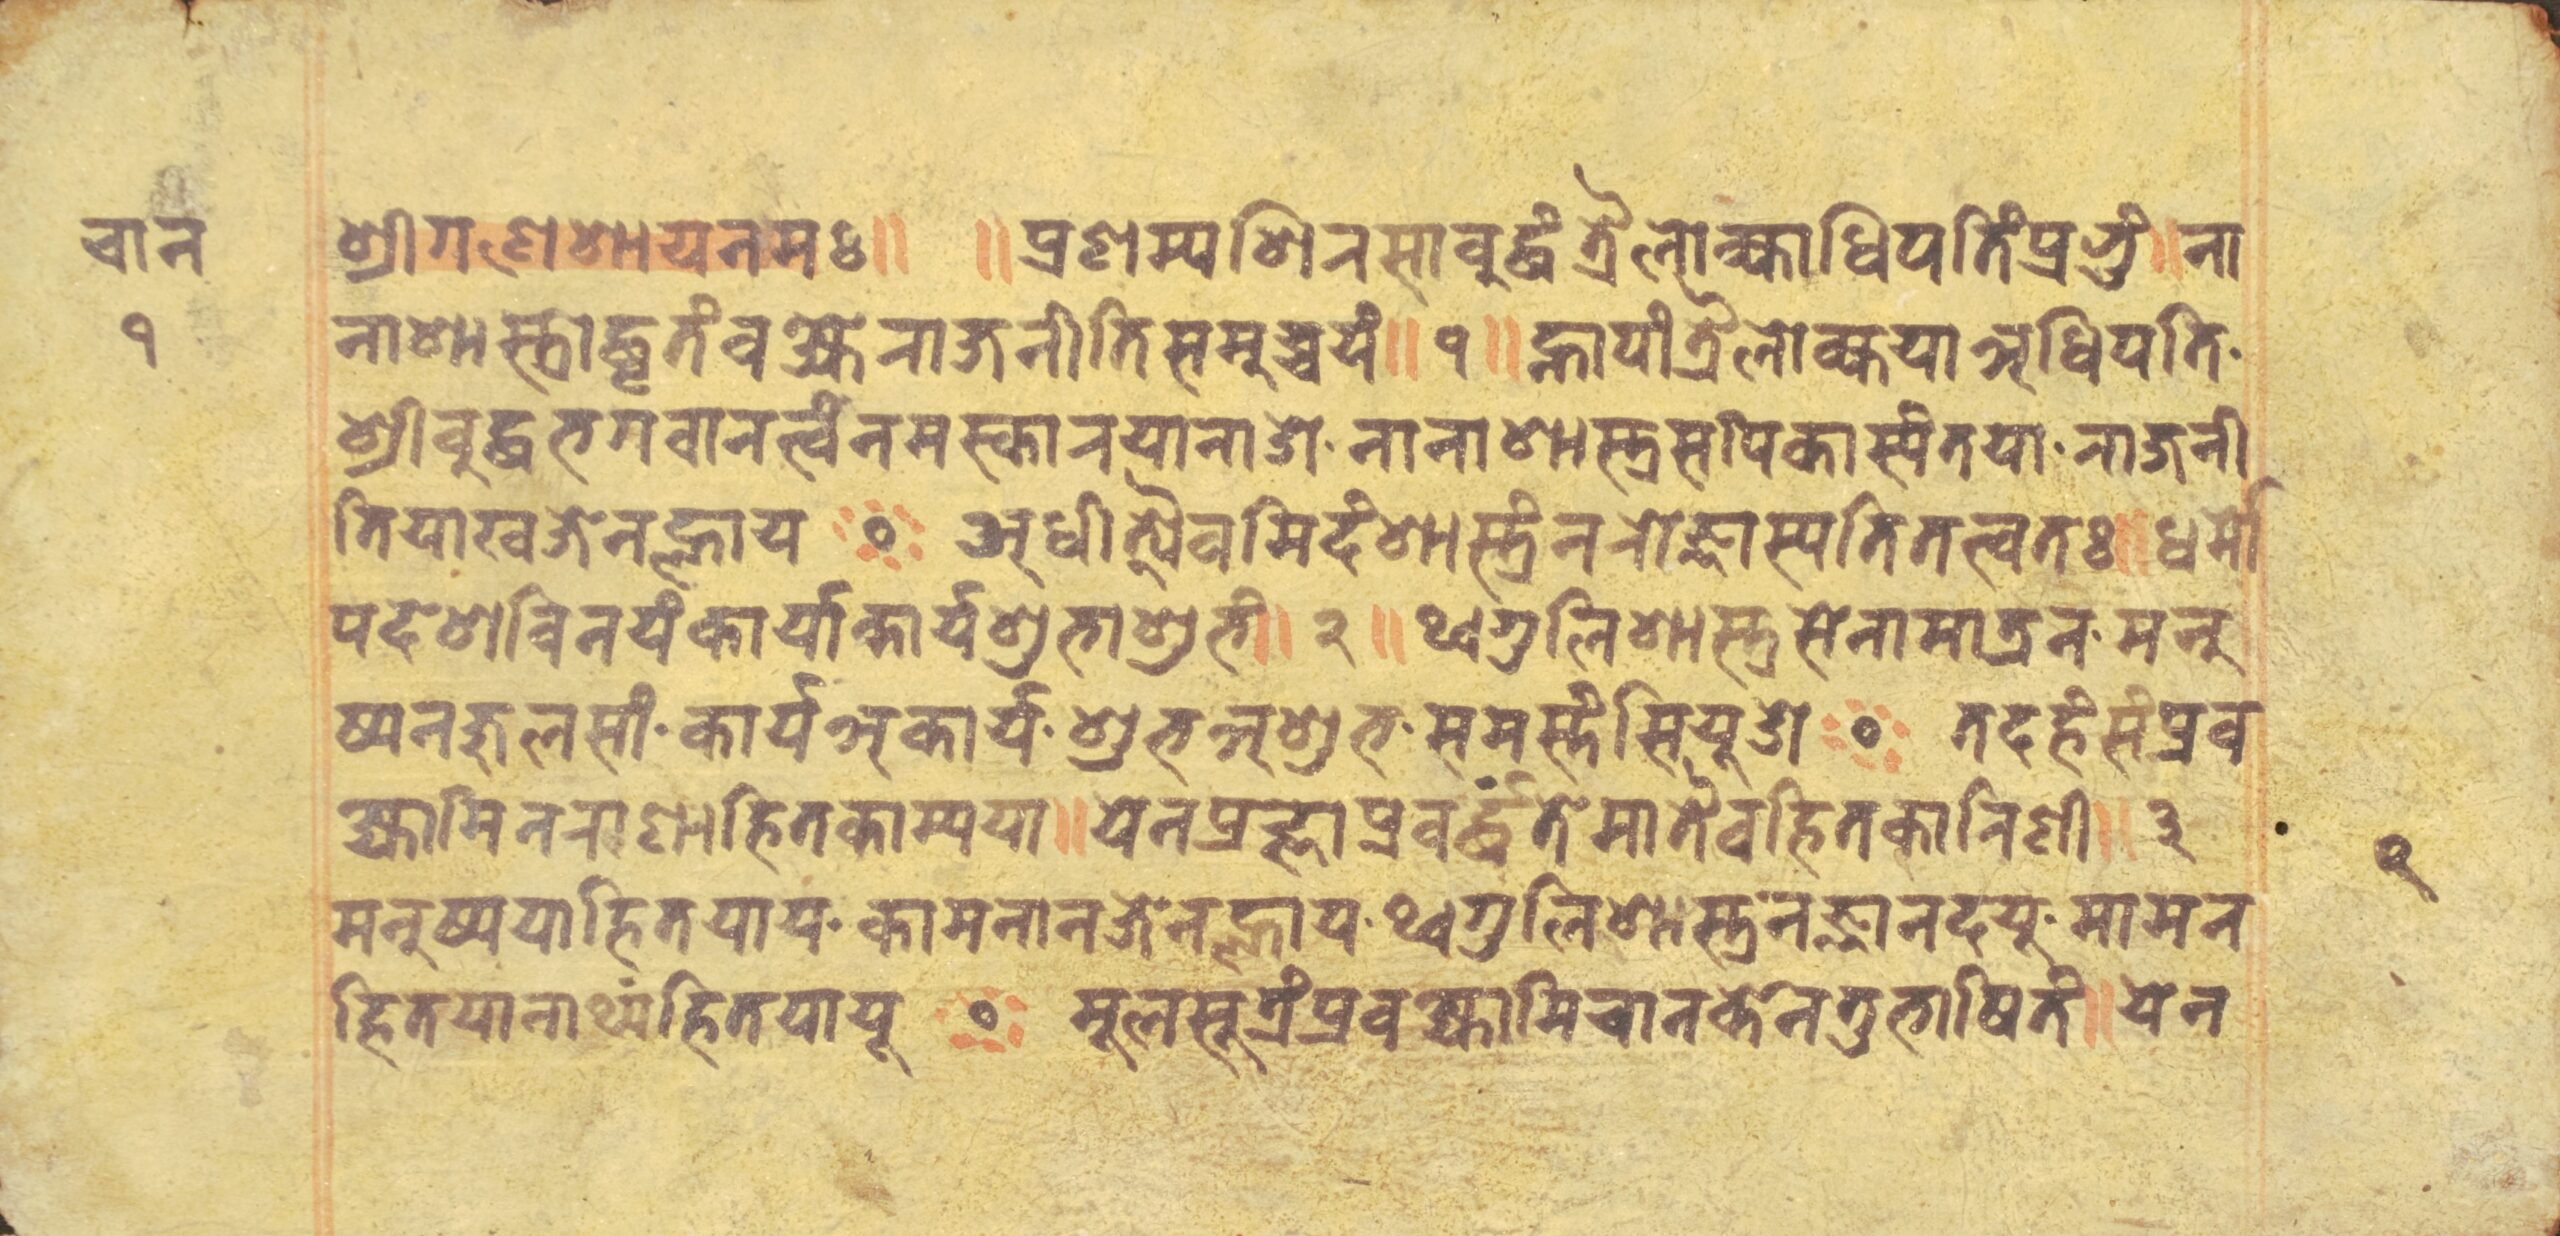 चान
१
श्रीगणेशायनमः॥ ॥प्रणम्यशिरसाबुद्धंत्रैलोक्याधिपतिंप्रभुं॥ना
नाशास्त्रोद्धृतंवक्ष्येराजनीतिसमुच्चयं॥१॥ह्नापांत्रैलोक्ययाअधिपति·
श्रीबुद्धभगवानत्वंनमस्कारयानाओ·नानाशास्त्रसपिकास्यंतया·राजनी
तियाखजेनह्लाय ॰ अधीत्यैवमिदंशास्त्रंनरोज्ञास्यतितत्वतः॥धर्मो
पदेशविनयंकार्याकार्यशुभाशुभं॥२॥थ्वगुलिशास्त्रसेनामात्रन·मनु
ष्यनजुलसां·कार्यअकार्य·शुभअशुभ·समस्तंसियूओ ॰ तदहंसंप्रव
क्ष्यामिनराणांहितकाम्यया॥येनप्रज्ञाप्रवर्द्धंतेमातैवहितकारिणी॥३
मनुष्ययाहितयाय·कामनानजेनह्लाय·थ्वगुलिशास्त्रनज्ञानदयु·मामन
हितयानाथ्यंहितयायू ॰ मूलसूत्रंप्रवक्ष्यामिचानकेनतुभाषितं॥येन
२